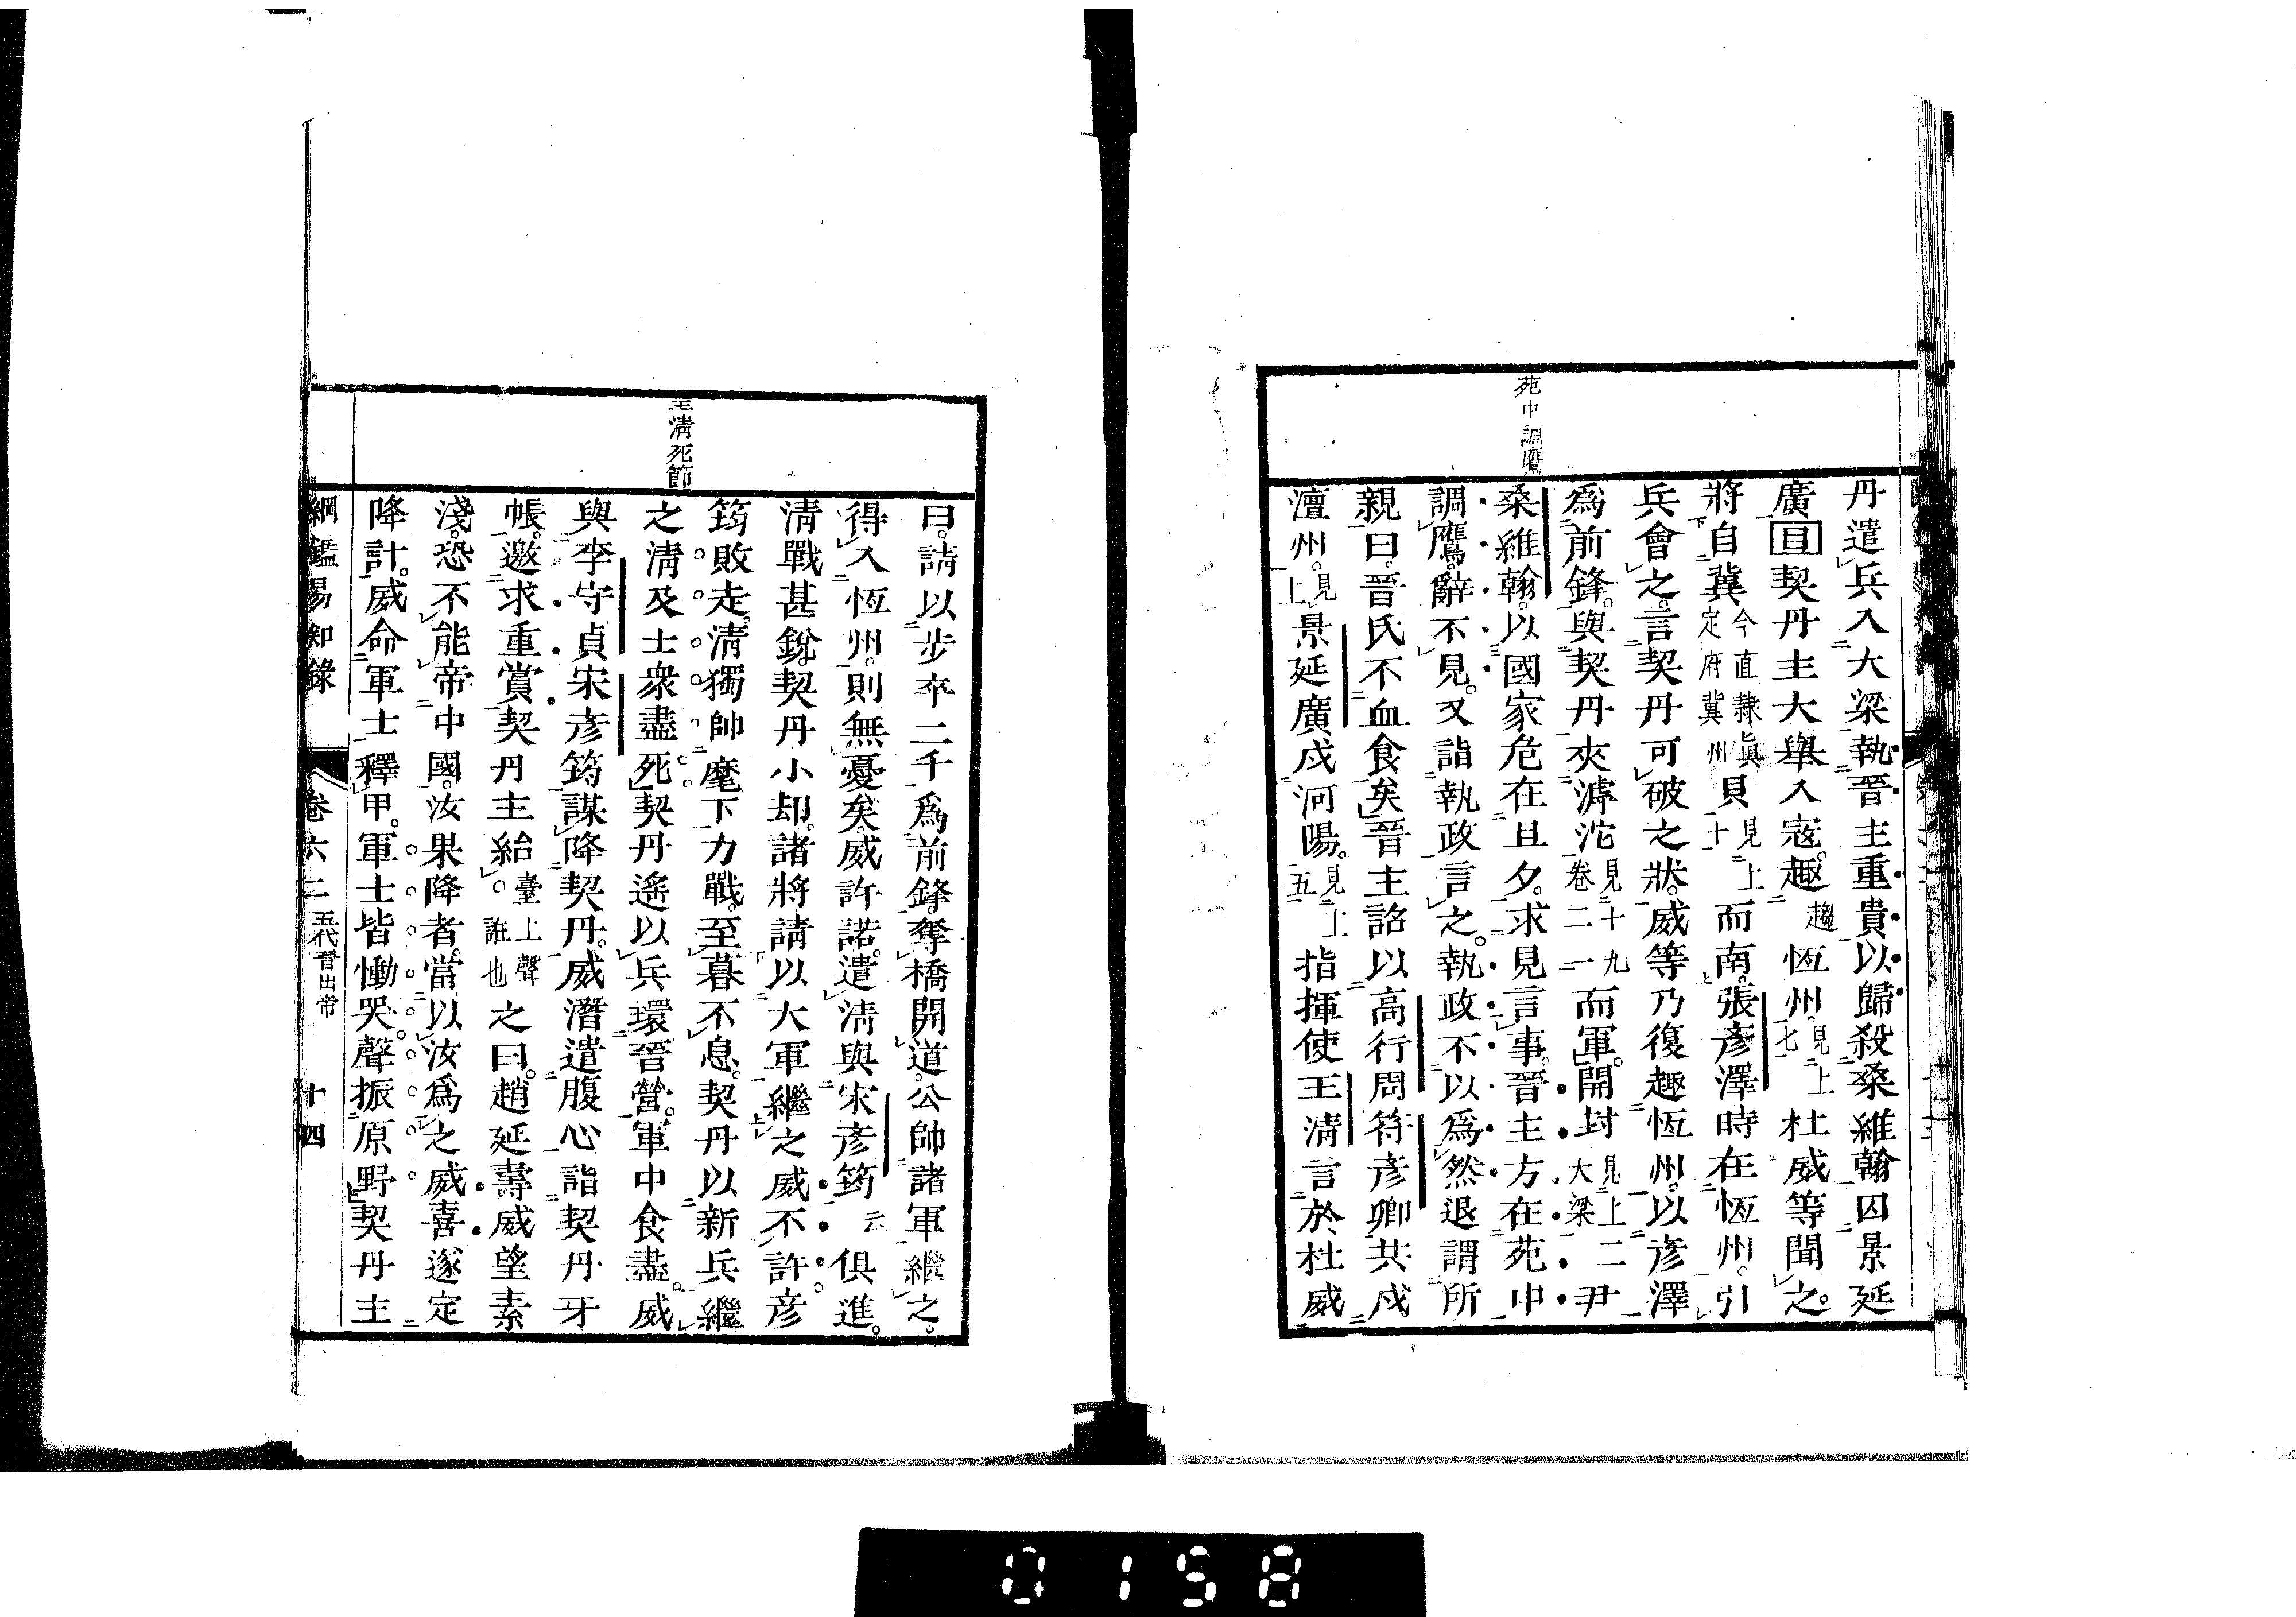 苑中調鷹
丹遣兵入大梁執晉主重貴以歸殺桑維翰囚景延
廣目契丹主大舉入寇。趣趨恆州。見上七杜威等聞之。
將自冀今直隸眞定府冀州貝見上十而南。張彥澤時在恆州。引
兵會之。言契丹可破之狀。威等乃復趣恆州。以彥澤
爲前鋒。與契丹夾滹沱見十九卷二一而軍。開封見上大梁二尹
桑維翰。以國家危在旦夕。求見言事。晉主方在苑中
調鷹。辭不見。又詣執政言之。執政不以爲然。退謂所
親曰。晉氏不血食矣。晉主詔以高行周符彥卿共戍
澶州。見上景延廣戍河陽。見上五指揮使王淸言於杜威
王淸死節
曰。請以步卒二千爲前鋒。奪橋開道。公帥諸軍繼之。
得入恆州。則無憂矣。威許諾。遣淸與宋彥筠云俱進。
淸戰甚銳。契丹小却。諸將請以大軍繼之。威不許。彥
筠敗走。淸獨帥麾下力戰。至暮不息。契丹以新兵繼
之淸及士衆盡死。契丹遙以兵環晉營。軍中食盡。威
與李守貞宋彥筠謀降契丹。威潛遣腹心詣契丹牙
帳。邀求重賞契丹主紿。臺上聲誑也之曰。趙延壽威望素
淺。恐不能帝中國。汝果降者。當以汝爲之威喜遂定
降計。威命軍士釋甲。軍士皆慟哭。聲振原野。契丹主
綱鑑易知錄 卷六二 五代晉出帝 十四
0158